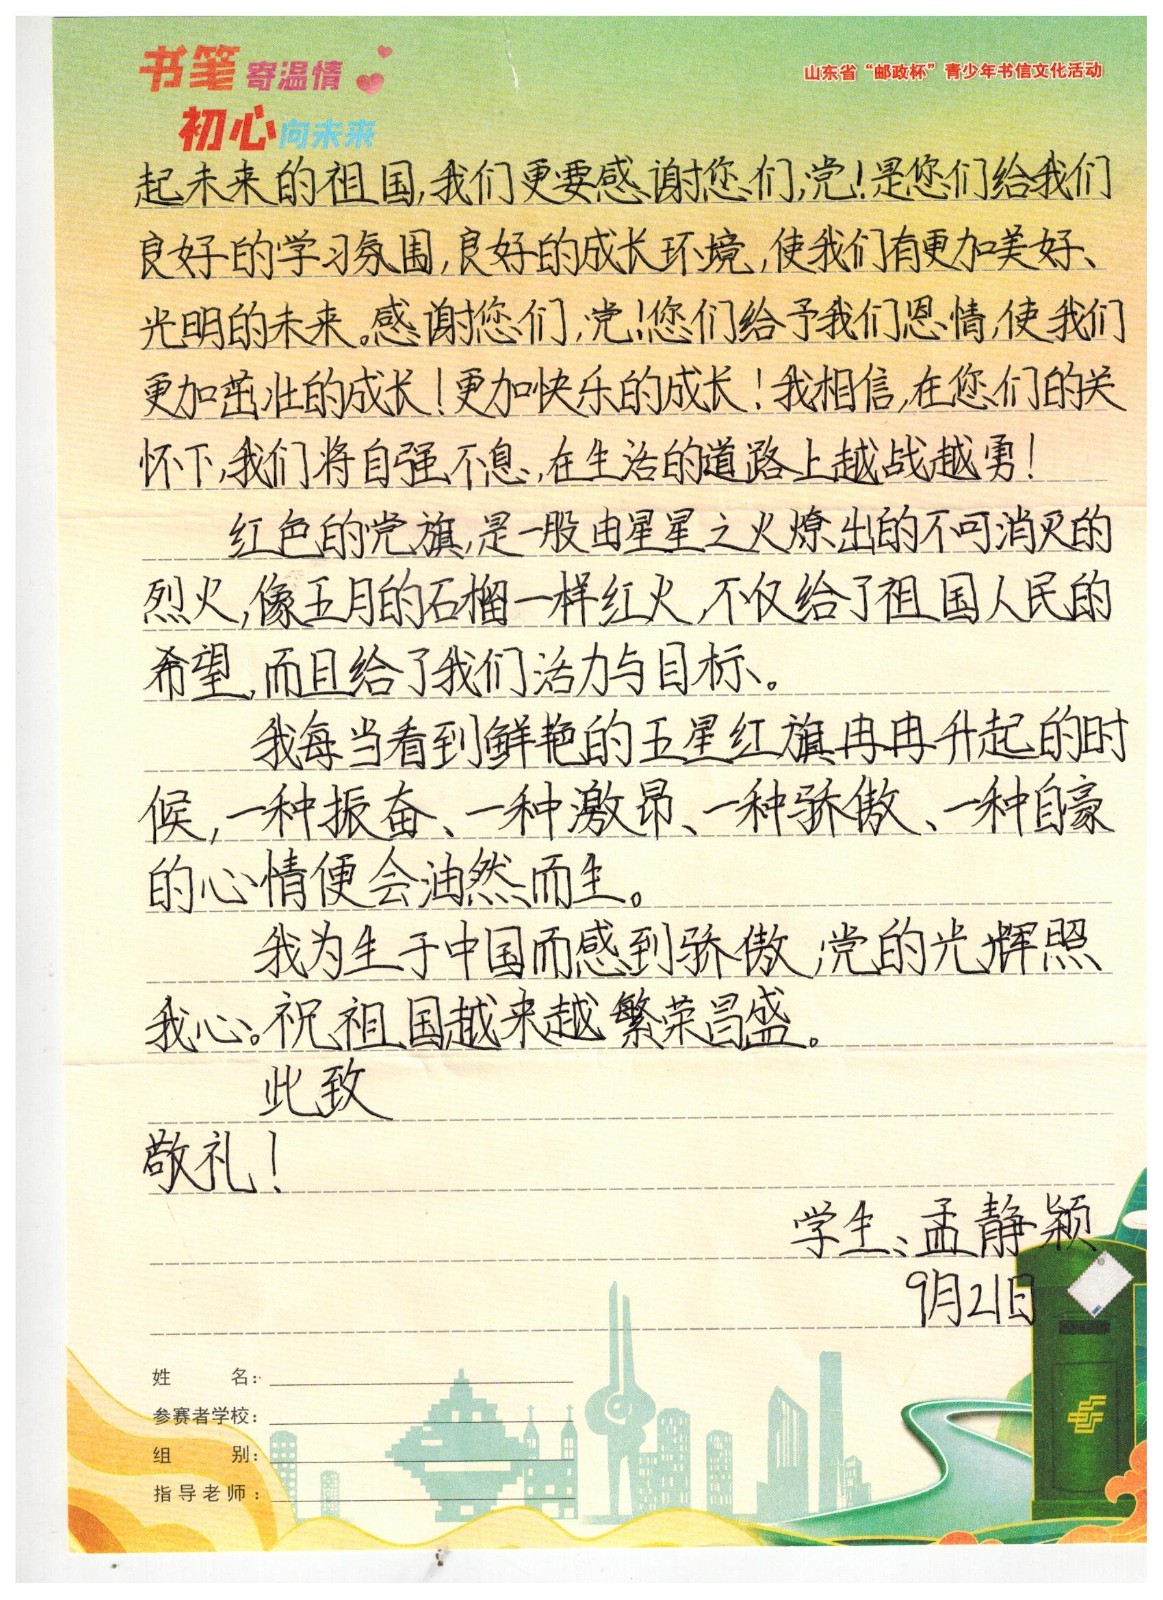 书笔寄温情
初心向未来
山东省“邮政杯”青少年书信文化活动
起未来的祖国,我们更要感谢您们,党!是您们给我们
良好的学习氛围,良好的成长环境,使我们有更加美好、
光明的未来。感谢您们,党!您们给予我们恩情,使我们
更加茁壮的成长!更加快乐的成长!我相信,在您们的关
怀下,我们将自强不息,在生活的道路上越战越勇!
红色的党旗,是一股由星星之火燎出的不可消灭的
烈火,像五月的石榴一样红火,不仅给了祖国人民的
希望,而且给了我们活力与目标。
我每当看到鲜艳的五星红旗冉冉升起的时
候,一种振奋、一种激昂、一种骄傲、一种自豪
的心情便会油然而生。
我为生于中国而感到骄傲,党的光辉照
我心。祝祖国越来越繁荣昌盛。
此致
敬礼!
学生:孟静颖
9月21日
姓 名:
参赛者学校:
组 别:
指导老师: